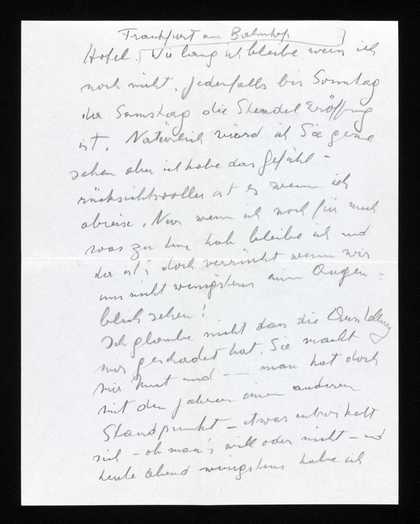 Frankfurt am Bahnhof
Hotel. Wie lang ich bleibe weiss ich
noch nicht. Jedenfalls bis Sonntag
da Samstag die Staedel Eröffnung
ist. Natürlich würd ich Sie gerne
sehen aber ich habe das Gefühl –
rücksichtsvoller ist es wenn ich
abreise. Nur wenn ich noch für mich
was zu tun hab bleibe ich und
da ist's doch verrückt wenn wir
uns nicht wenigstens einen Augen-
blick sehen!
Ich glaube nicht dass die Ausstellung
mir geschadet hat. Sie macht
mir Mut und — man hat doch
mit den Jahren einen anderen
Standpunkt – etwas
sich – ob man's will oder nicht – und
heute Abend wenigstens habe ich